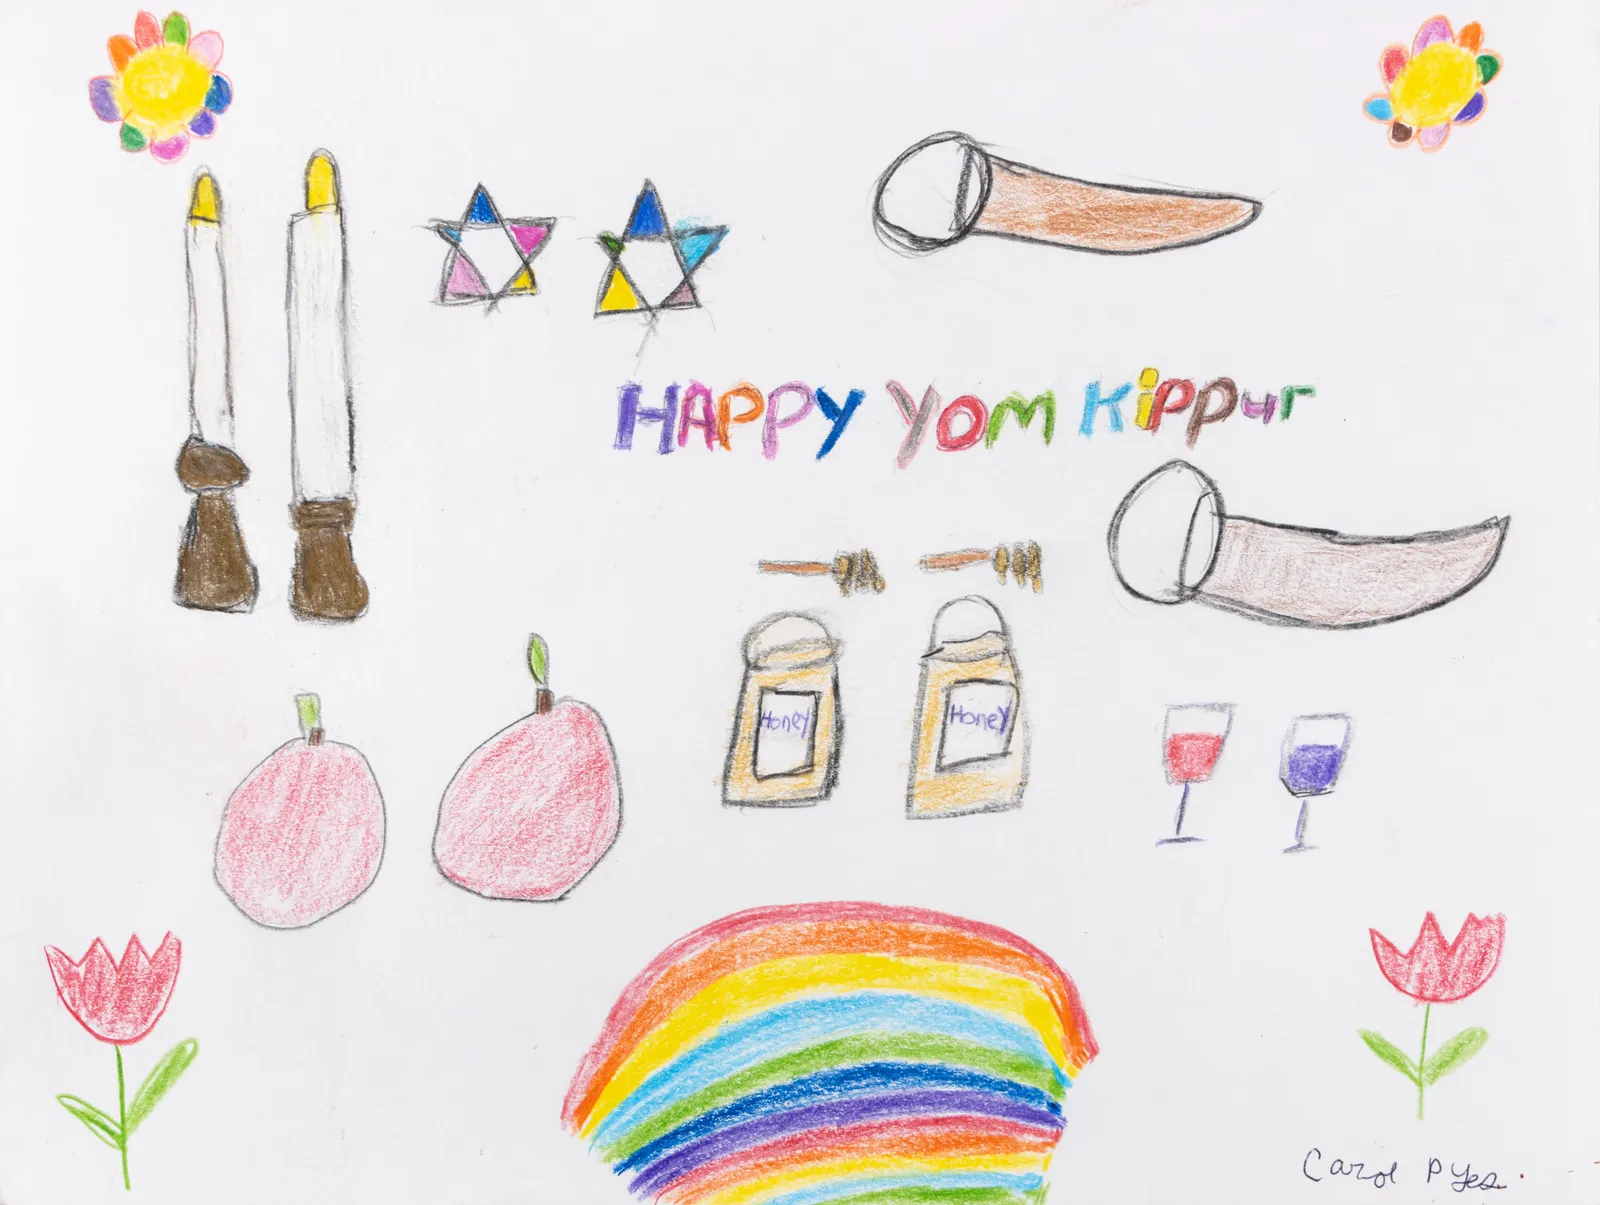 HAPPY YOM KiPPur
Honey
Honey
Carol Pyes.